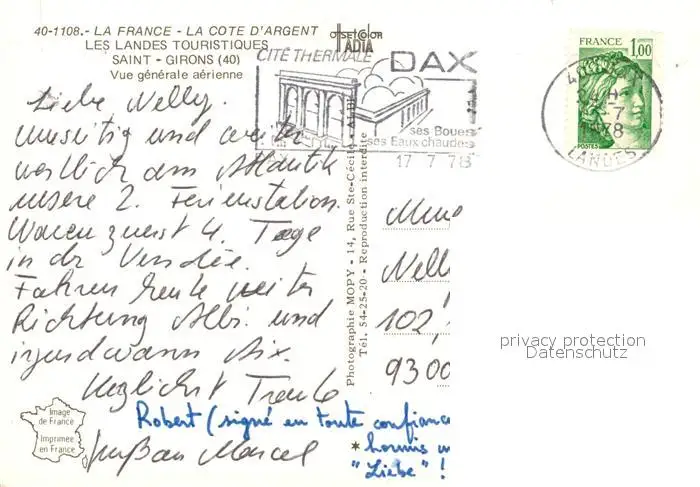 40-1108.- LA FRANCE - LA COTE D'ARGENT
LES LANDES TOURISTIQUES
SAINT - GIRONS (40)
Vue générale aérienne
OFFSET COLOR
IADIA
CITÉ THERMALE DAX
ses Boues
ses Eaux chaudes
17 7 78
FRANCE 1,00
POSTES
1978
LANDES
Liebe Nelly.
und weiter
westlich am Atlantik
unsere 2. Ferienstation.
Waren zuerst 4 Tage
in der Vendée.
Fahren heute weiter
Richtung Albi und
irgendwann Aix.
Herzlichst
Robert (signé en toute confiance
* hormis
"Liebe" !
Gruß an Marcel
Photographie MOPY - 14, Rue Ste-Cécile - ALBI
Tél. 54-25-20 - Reproduction interdite
Mme
Nelly
102,
9300
Image
de France
Imprimée
en France
privacy protection
Datenschutz